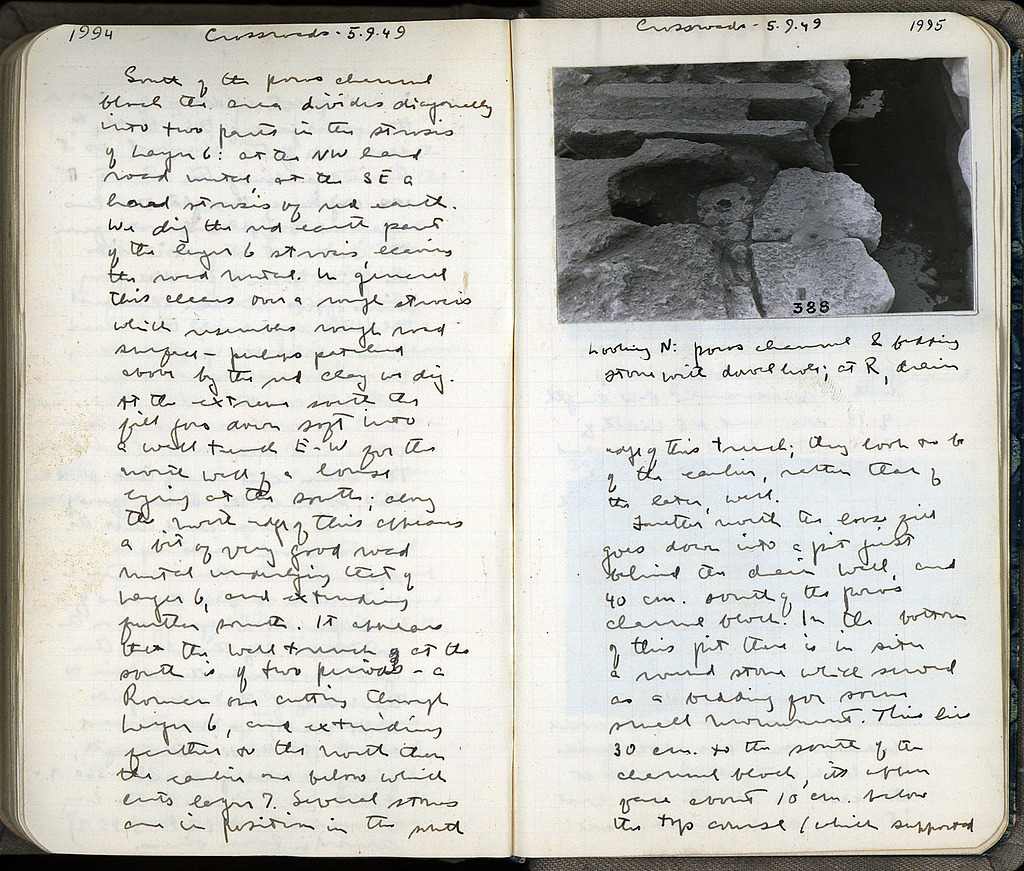 1994 Crossroads - 5.9.49
South of the poros channel
block the area divides diagonally
into two parts in the strosis
of Layer 6: at the NW hard
road metal, at the SE a
hard strosis of red earth.
We dig the red earth part
of the layer 6 strosis, leaving
the road metal. In general
this cleans over a rough strosis
which resembles rough road
surface - perhaps patched
above by the red clay we dig.
At the extreme south the
fill goes down soft into
a wall trench E-W for the
north wall of a house
lying at the south; along
the north edge of this appears
a bit of very good road
metal underlying that of
Layer 6, and extending
further south. It appears
that the wall trench at the
south is of two periods - a
Roman one cutting through
Layer 6, and extending
further to the north than
the earlier one below which
cuts layer 7. Several stones
are in position in the south
Crossroads - 5.9.49 1995
388
Looking N: poros channel & bedding
stone with dowel hole; at R, drain
edge of this trench; they look to be
of the earlier, rather than of
the later, wall.
Further north the loose fill
goes down into a pit just
behind the drain wall, and
40 cm. south of the poros
channel block. In the bottom
of this pit there is in situ
a round stone which served
as a bedding for some
small monument. This lies
30 cm. to the south of the
channel block, its upper
face about 10 cm. below
the top course (which supported